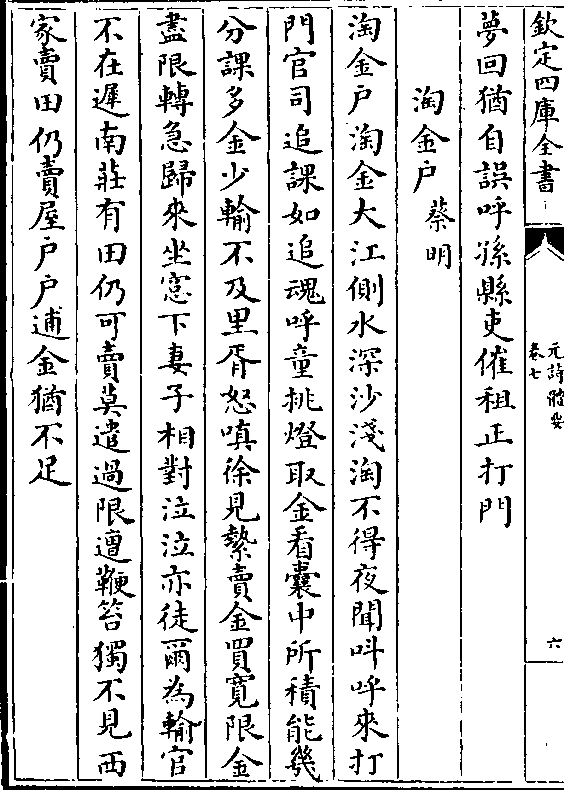 欽定四庫全書
元詩體要
卷七
六
夢回猶自誤呼孫縣吏催租正打門
淘金户 蔡明
淘金户淘金大江側水深沙淺淘不得夜聞叫呼來打
門官司追課如追魂呼童挑燈取金看囊中所積能幾
分課多金少輸不及里胥怒嗔徐見縶賣金買寛限金
盡限轉急歸來坐窓下妻子相對泣泣亦徒爾為輸官
不在遲南莊有田仍可賣莫遣過限遭鞭笞獨不見西
家賣田仍賣屋户户逋金猶不足